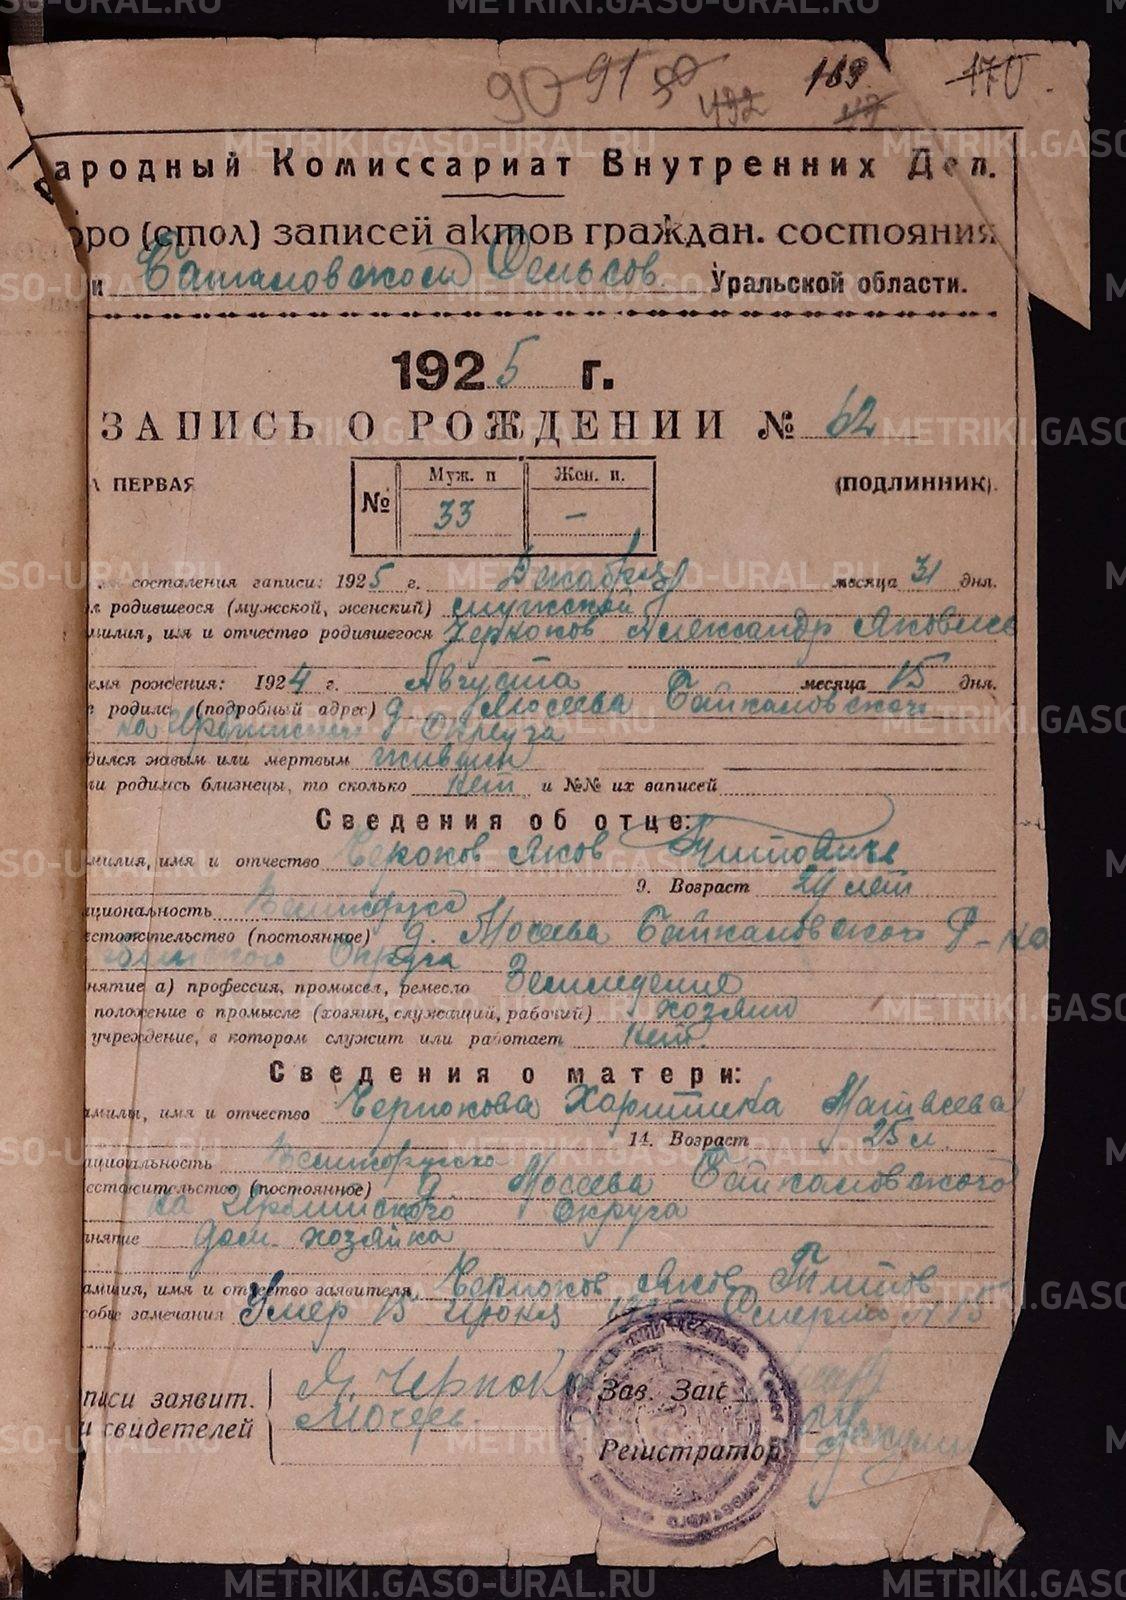 90 91 50 492 169 47 170
ародный Комиссариат Внутренних Дел.
ро (стол) записей актов граждан. состояния
и Сельсов. Уральской области.
1925 г.
ЗАПИСЬ О РОЖДЕНИИ № 62
ПЕРВАЯ (ПОДЛИННИК).
№ Муж. п Жен. п.
33 —
состаления записи: 1925 г. Декабря месяца 31 дня.
л родившегося (мужской, женский) мужской
милия, имя и отчество родившегося Черноков Александр Яковлев
емя рождения: 1924 г. Августа месяца 15 дня.
родилс (подробный адрес) д. Мосеева Байкаловского
на Ирбитского Округа
дился живым или мертвым живым
ли родились близнецы, то сколько нет и №№ их записей
Сведения об отце:
милия, имя и отчество Черноков Яков Титович
9. Возраст 29 лет
циональность Великорусс
естожительство (постоянное) д. Мосеева Байкаловского Р-на
Округа
нятие а) профессия, промысел, ремесло Земледелие
положение в промысле (хозяин, служащий, рабочий) хозяин
учреждение, в котором служит или работает нет.
Сведения о матери:
амилия, имя и отчество Чернокова Матвеева
14. Возраст 25 л.
циональность Великорусска
естожительство (постоянное) д. Мосеева Байкаловского
на Ирбитского Округа
нятие дом. хозяйка
амилия, имя и отчество заявителя Черноков Яков Титов
собые замечания Умер 15 Июня
писи заявит. Я. Черноко
и свидетелей
Зав. Загс
Регистратор
METRIKI.GASO-URAL.RU